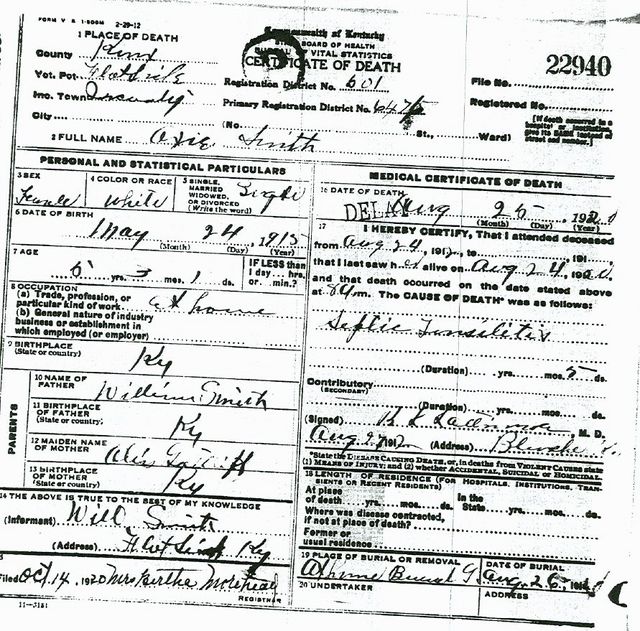 FORM V S 1-500M 2-29-12
1 PLACE OF DEATH
County Knox
Vot. Pct. Flat Lick
Inc. Town
City
Commonwealth of Kentucky
STATE BOARD OF HEALTH
BUREAU OF VITAL STATISTICS
CERTIFICATE OF DEATH
Registration District No. 601
Primary Registration District No. 6475
(No. St., Ward)
File No. 22940
Registered No.
[If death occurred in a hospital or institution, give its NAME instead of street and number.]
2 FULL NAME Smith
PERSONAL AND STATISTICAL PARTICULARS
3 SEX Female
4 COLOR OR RACE White
5 SINGLE, MARRIED WIDOWED, OR DIVORCED (Write the word) Single
6 DATE OF BIRTH
May 24, 1915
(Month) (Day) (Year)
7 AGE
5 yrs. 3 mos. 1 ds.
IF LESS than 1 day... hrs. or... min.?
8 OCCUPATION
(a) Trade, profession, or particular kind of work at home
(b) General nature of industry business or establishment in which employed (or employer)
9 BIRTHPLACE
(State or country) Ky
PARENTS
10 NAME OF FATHER William Smith
11 BIRTHPLACE OF FATHER (State or country) Ky
12 MAIDEN NAME OF MOTHER
13 BIRTHPLACE OF MOTHER (State or country) Ky
14 THE ABOVE IS TRUE TO THE BEST OF MY KNOWLEDGE
(Informant) Will Smith
(Address) Flat Lick Ky
15
Filed Oct. 14, 1920 Mrs Bertha
REGISTRAR
11-3181
MEDICAL CERTIFICATE OF DEATH
16 DATE OF DEATH
DELAY Aug 25, 1920
(Month) (Day) (Year)
17 I HEREBY CERTIFY, That I attended deceased
from Aug 24, 191 , to 191
that I last saw her alive on Aug 24, 1920,
and that death occurred on the date stated above
at 8 A m. The CAUSE OF DEATH* was as follows:
Septic Tonsilitis
(Duration) yrs. mos. 5 ds.
Contributory
(SECONDARY)
(Duration) yrs. mos. ds.
(Signed) M. D.
Aug 191 (Address)
*State the DISEASE CAUSING DEATH, or, in deaths from VIOLENT CAUSES state (1) MEANS OF INJURY; and (2) whether ACCIDENTAL, SUICIDAL or HOMICIDAL.
18 LENGTH OF RESIDENCE (FOR HOSPITALS, INSTITUTIONS, TRANSIENTS OR RECENT RESIDENTS)
At place of death yrs. mos. ds. In the State yrs. mos. ds.
Where was disease contracted, if not at place of death?
Former or usual residence
19 PLACE OF BURIAL OR REMOVAL
At home Burial G.
DATE OF BURIAL
Aug. 26, 191
20 UNDERTAKER
ADDRESS